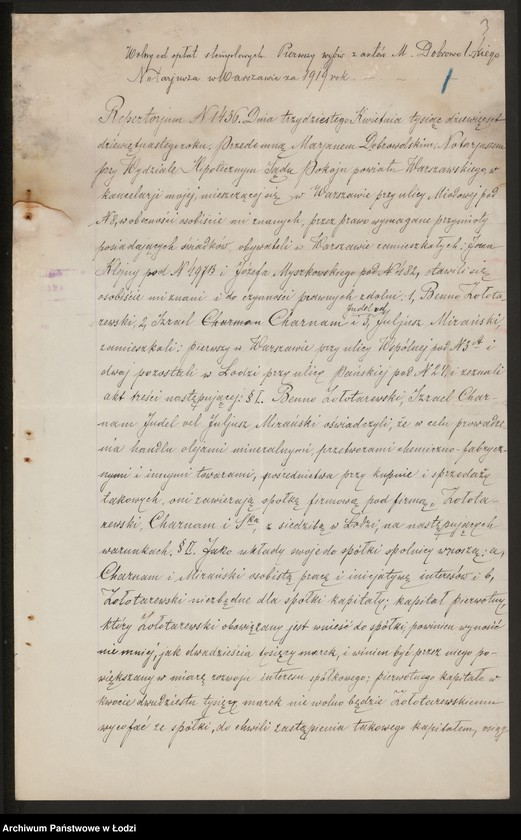 3
Wolny od opłat stemplowych. Pierwszy wypis z aktów M. Dobrowolskiego
Notarjusza w Warszawie za 1919 rok.
1
Repertorjum N 1436. Dnia trzydziestego Kwietnia tysiąc dziewięćset
dziewiętnastego roku. Przedemną Marjanem Dobrowolskim, Notarjuszem
przy Wydziale Hipotecznym Sądu Pokoju powiatu Warszawskiego, w
kancelarji mojej, mieszczącej się w Warszawie przy ulicy Miodowej pod
N, w obecności osobiście mi znanych, przez prawo wymagane przymioty
posiadających świadków, obywateli w Warszawie zamieszkałych: Jana
Kępny pod N 497B i Józefa Myszkowskiego pod N 482, stawili się
osobiście mi znani i do czynności prawnych zdolni: 1, Benno Zołota-
rewski, 2, Izrael Charman Charnam i 3, Judel vel Juljusz Mirański,
zamieszkali: pierwszy w Warszawie przy ulicy Wspólnej pod N 3 i
dwaj pozostali w Łodzi przy ulicy Pańskiej pod N 24, i zeznali
akt treści następującej: § I. Benno Zołotarewski, Izrael Char-
nam Judel vel Juljusz Mirański oświadczyli, że w celu prowadze-
nia handlu olejami mineralnymi, przetworami chemiczno-fabrycz-
nymi i innymi towarami, pośrednictwa przy kupnie i sprzedaży
takowych, oni zawierają spółkę firmową pod firmą „Zołota-
rewski, Charnam i Ska", z siedzibą w Łodzi, na następujących
warunkach. § II. Jako wkłady swoje do spółki spólnicy wnoszą: a,
Charnam i Mirański osobistą pracę i inicjatywę interesów i b,
Zołotarewski niezbędne dla spółki kapitały; kapitał pierwotny,
który Zołotarewski obowiązany jest wnieść do spółki, powinien wynosić
nie mniej, jak dwadzieścia tysięcy marek, i winien być przez niego po-
większany w miarę rozwoju interesu spółkowego; pierwotnego kapitału w
kwocie dwudziestu tysięcy marek nie wolno będzie Zołotarewskiemu
wycofać ze spółki, do chwili zastąpienia takowego kapitałem, osiąg-
Archiwum Państwowe w Łodzi